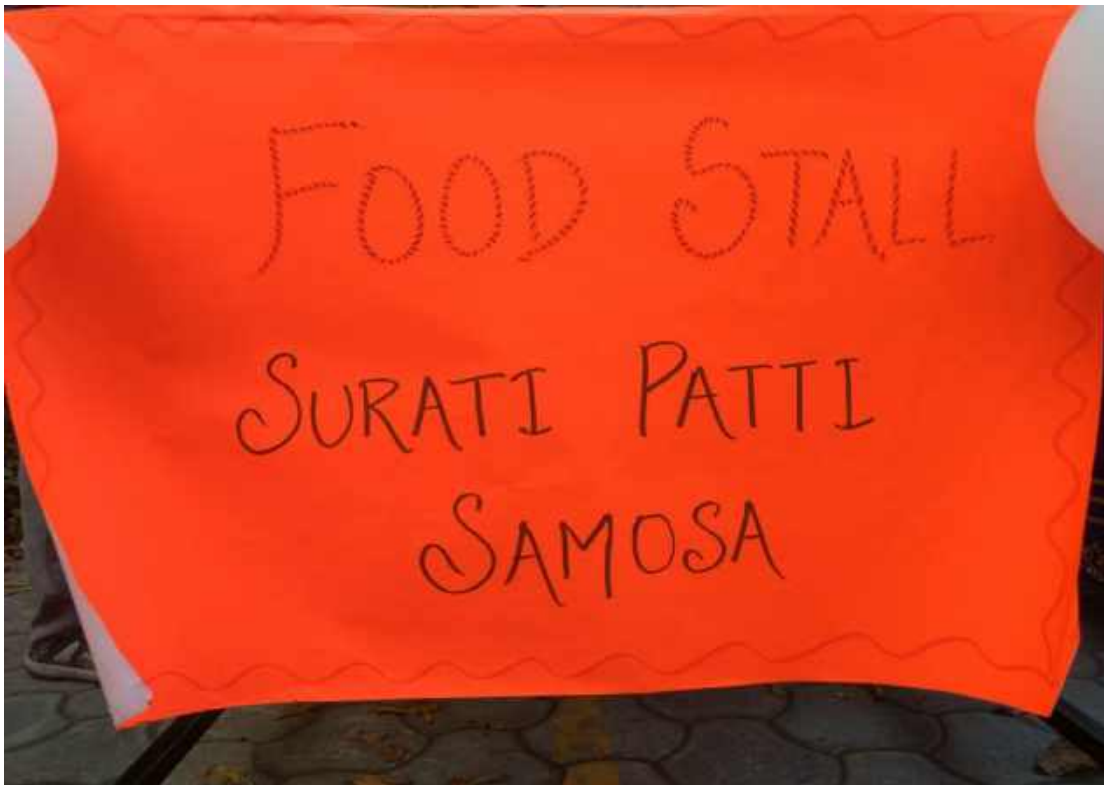 FOOD STALL
SURATI PATTI
SAMOSA